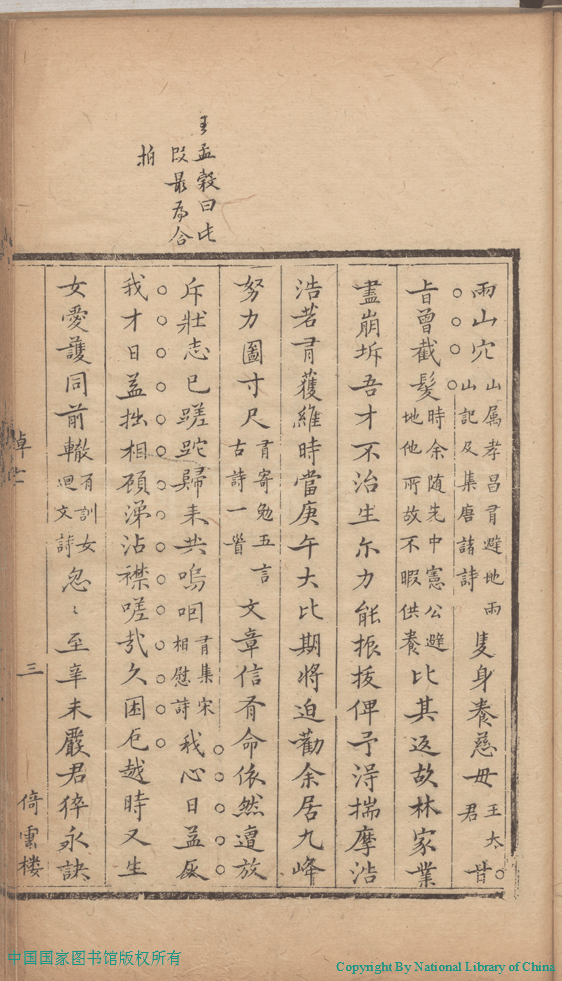 王孟穀曰此
段最為合
拍
雨山穴山属孝昌有避地雨山記及集唐諸詩隻身養慈毋王太君甘
旨曾截髮時余随先中憲公避地他所故不暇供養比其返故林家業
盡崩坼吾才不治生尔力能振拔俾予淂揣摩浩
浩若有獲維時當庚午大比期將迫勸余居九峰
努力圖寸尺有寄勉五言古詩一首文章信有命依然遭放
斥壯志已蹉跎歸来共嗚咽有集宋相慰詩我心日益灰
我才日益拙相顧涕沾襟嗟哉久困厄越時又生
女愛護同前轍有訓女廻文詩忽〻至辛未嚴君猝永訣
悼亡 三 倚雲楼
中国国家图书馆版权所有
Copyright By National Library of China